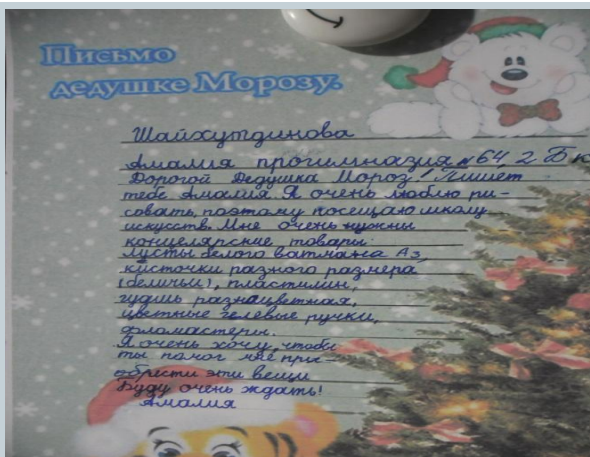 Письмо
дедушке Морозу.
Шайхутдинова
Амалия прогимназия №64, 2 Б
Дорогой Дедушка Мороз! Пишет
тебе Амалия. Я очень люблю ри-
совать, поэтому посещаю школу
искусств. Мне очень нужны
концелярские товары:
листы белого ватманга А3,
кисточки разного размера
(беличьи), пластилин,
гуашь разноцветная,
цветные гелевые ручки,
фломастеры.
Я очень хочу, чтобы
ты помог мне при-
обрести эти вещи
Буду очень ждать!
Амалия